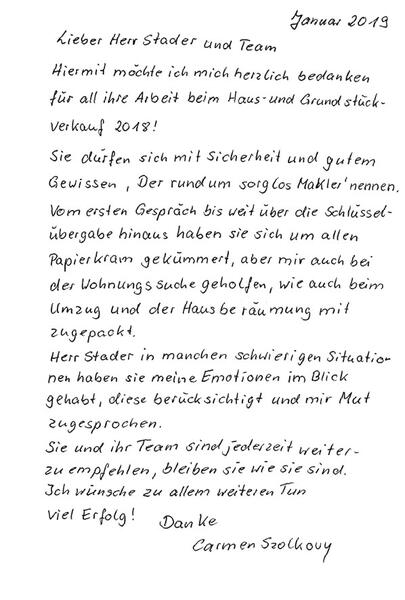 Januar 2019
Lieber Herr Stader und Team
Hiermit möchte ich mich herzlich bedanken
für all ihre Arbeit beim Haus- und Grundstück-
verkauf 2018!
Sie dürfen sich mit Sicherheit und gutem
Gewissen, Der rundum sorglos Makler' nennen.
Vom ersten Gespräch bis weit über die Schlüssel-
übergabe hinaus haben sie sich um allen
Papierkram gekümmert, aber mir auch bei
der Wohnungssuche geholfen, wie auch beim
Umzug und der Hausberäumung mit
zugepackt.
Herr Stader in manchen schwierigen Situatio-
nen haben sie meine Emotionen im Blick
gehabt, diese berücksichtigt und mir Mut
zugesprochen.
Sie und ihr Team sind jederzeit weiter-
zu empfehlen, bleiben sie wie sie sind.
Ich wünsche zu allem weiteren Tun
viel Erfolg!
Danke
Carmen Szolkovy